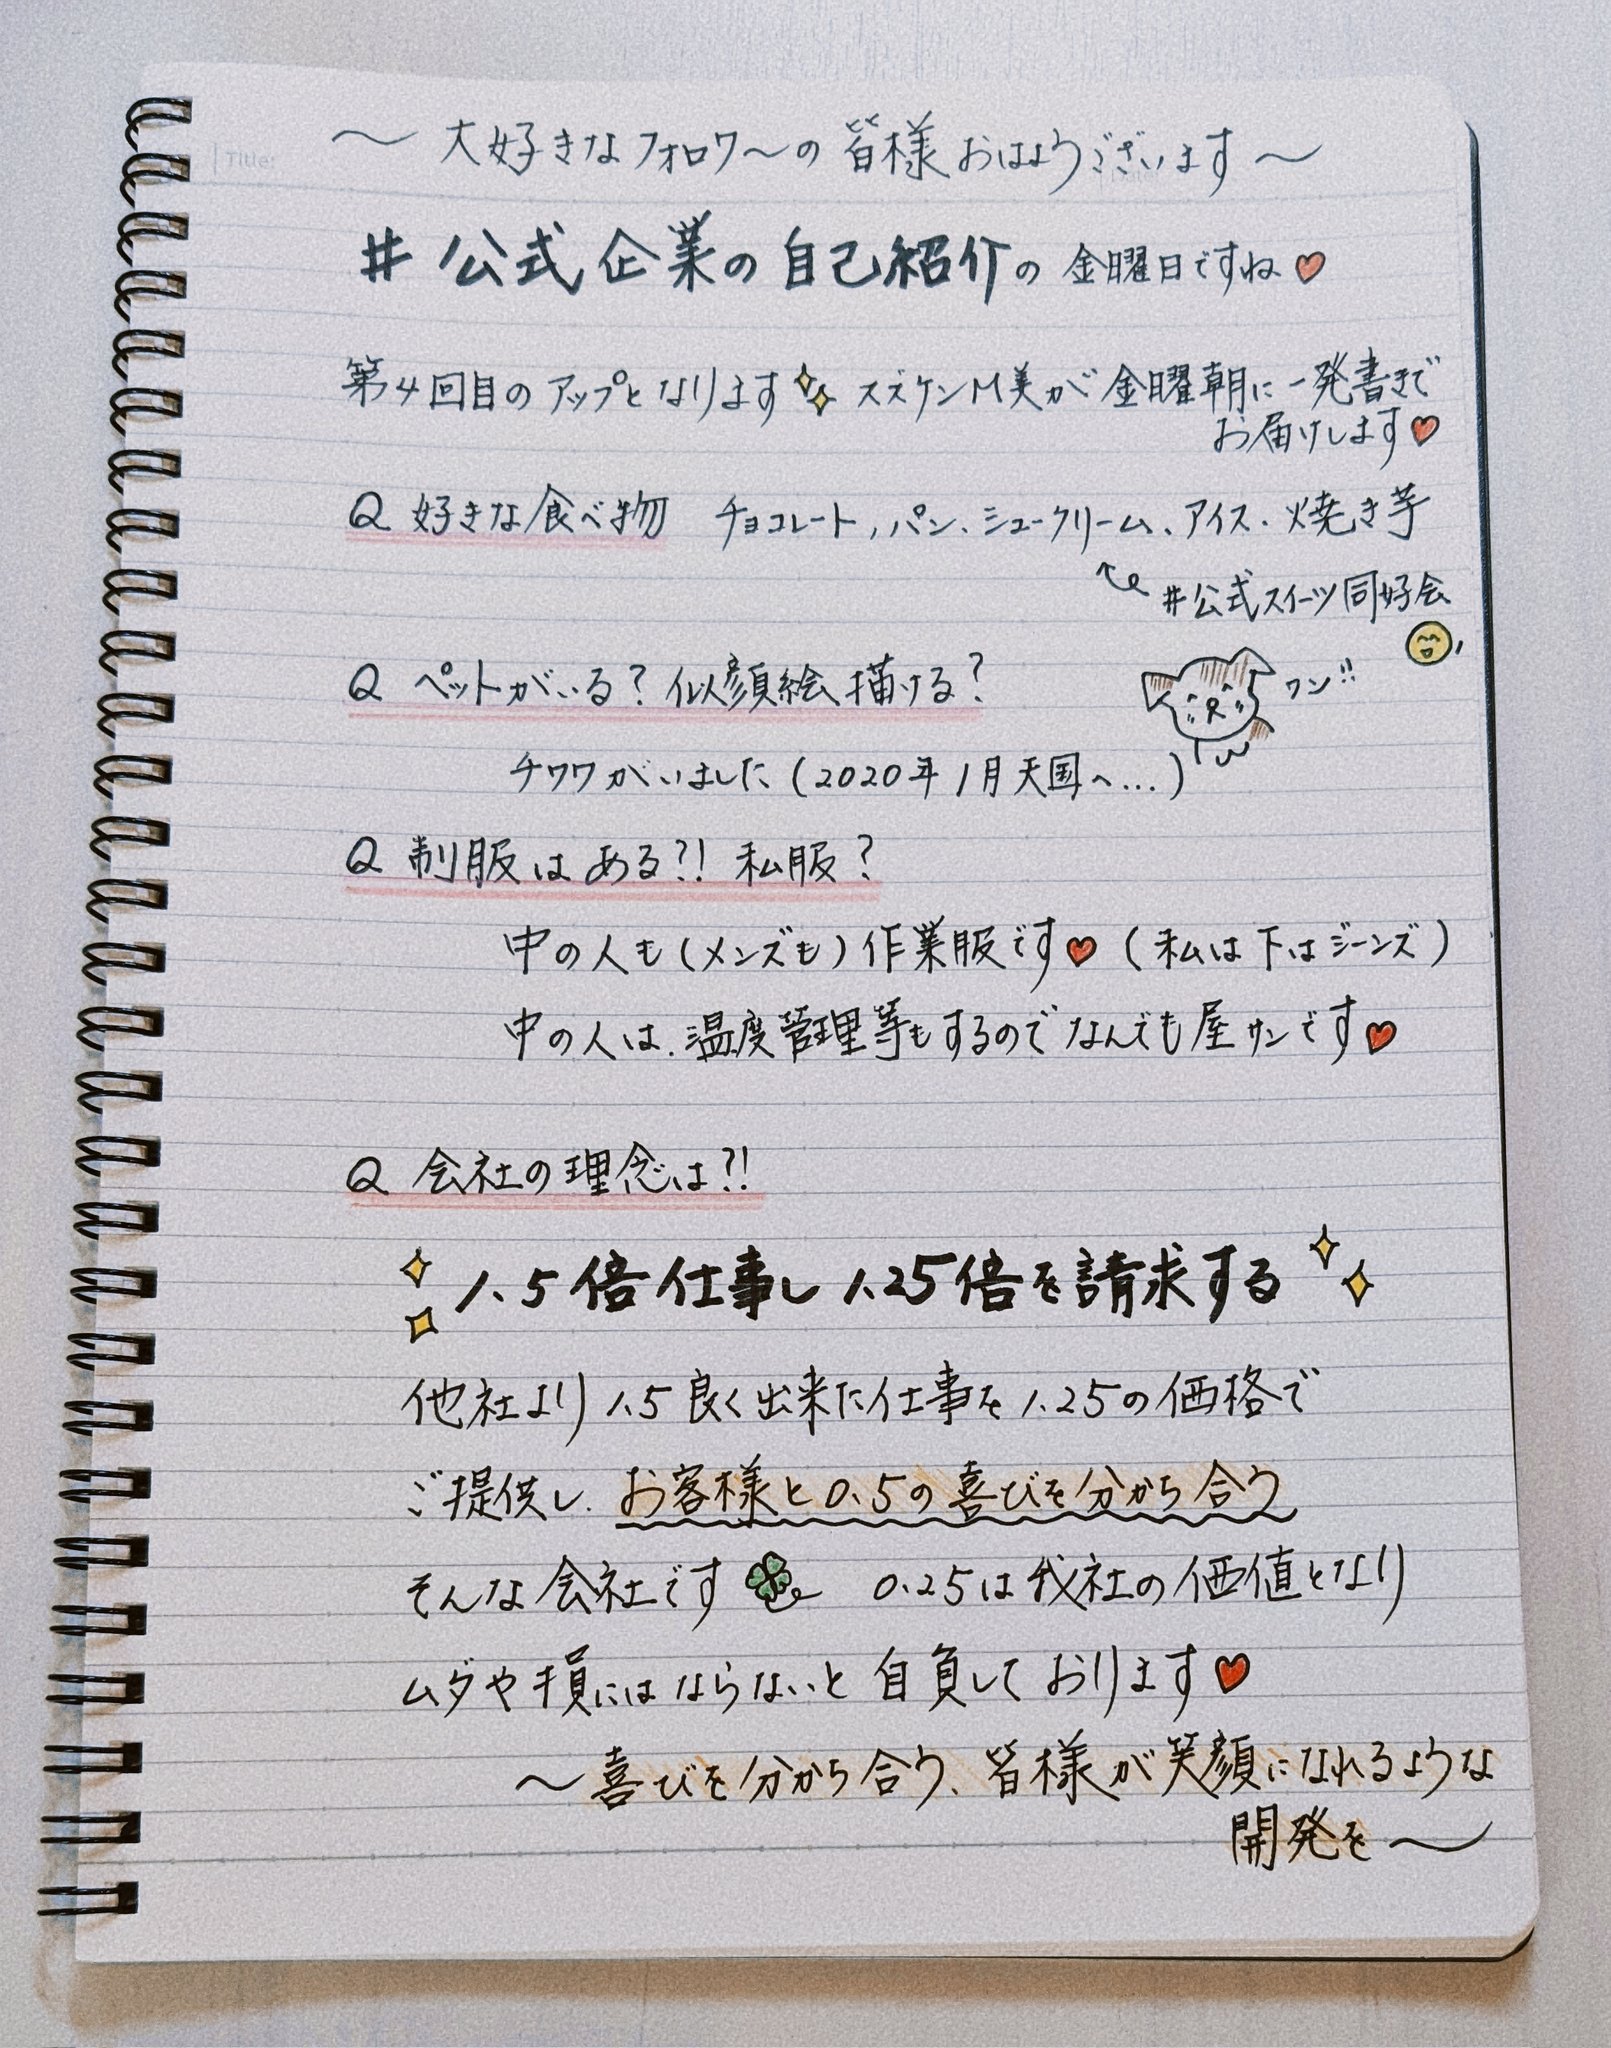 Title:
〜 大好きなフォロワ〜の皆様おはようございます 〜
# 公式企業の自己紹介の 金曜日ですね♥
第4回目のアップとなります✨ スズケンM美が金曜朝に一発書きで
お届けします♥
Q 好きな食べ物 チョコレート, パン、シュークリーム、アイス・焼き芋
#公式スイーツ同好会
Q ペットがいる? 似顔絵描ける?
ワン!!
チワワがいました (2020年1月天国へ...)
Q 制服はある?! 私服?
中の人も (メンズも) 作業服です♥ (私は下はジーンズ)
中の人は、温度管理等もするのでなんでも屋サンです♥
Q 会社の理念は?!
1.5倍仕事し1.25倍を請求する
他社より1.5良く出来た仕事を1.25の価格で
ご提供し、お客様と0.5の喜びを分から合う
そんな会社です🍀 0.25は我社の価値となり
ムダや損にはならないと自負しております♥
〜喜びを分から合う、皆様が笑顔になれるような
開発を〜